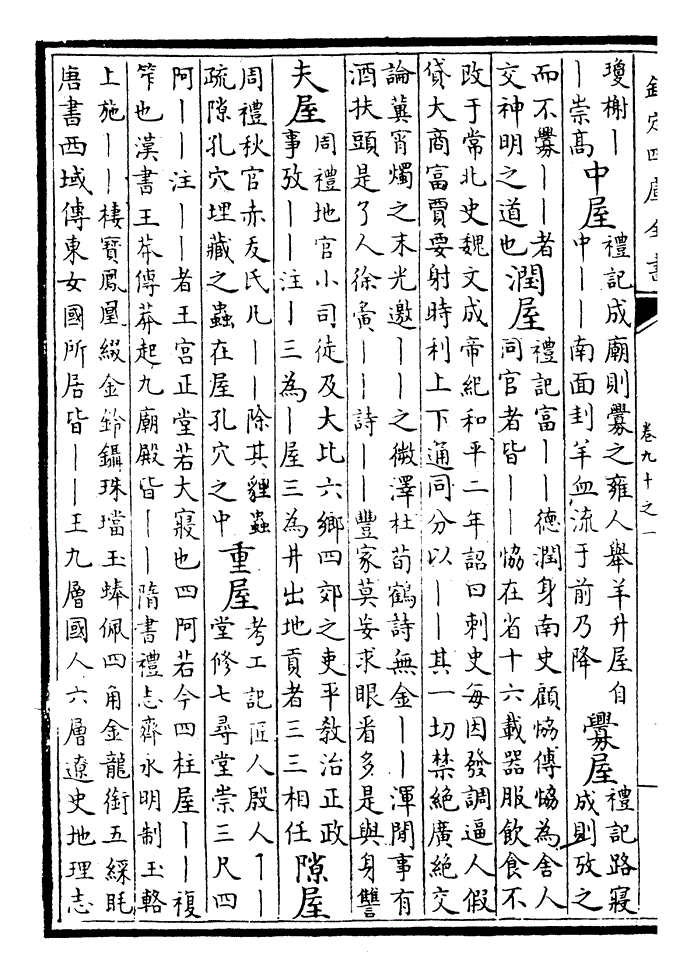 欽定四庫全書
卷九十之一
瓊榭丨
丨崇高
中屋
禮記成廟則釁之雍人舉羊升屋自
中丨丨南面封羊血流于前乃降
釁屋
禮記路寢
成則攷之
而不釁丨丨者
交神明之道也
潤屋
禮記富丨丨德潤身南史顧協傳協為舍人
同官者皆丨丨協在省十六載器服飲食不
改于常北史魏文成帝紀和平二年詔曰刺史每因發調逼人假
貸大商富賈要射時利上下通同分以丨丨其一切禁絕廣絕交
論冀宵燭之末光邀丨丨之微澤杜荀鶴詩無金丨丨渾閒事有
酒扶頭是了人徐夤丨丨詩丨丨豐家莫妄求眼看多是與身讐
夫屋
周禮地官小司徒及大比六鄉四郊之吏平教治正政
事攷丨丨注丨三為丨屋三為井出地貢者三三相任
隙屋
周禮秋官赤犮氏凡丨丨除其貍蟲
疏隙孔穴埋藏之蟲在屋孔穴之中
重屋
考工記匠人殷人丨丨
堂修七尋堂崇三尺四
阿丨丨注丨丨者王宮正堂若大寢也四阿若今四柱屋丨丨複
笮也漢書王莽傳莽起九廟殿皆丨丨隋書禮志齊永明制玉輅
上施丨丨棲寶鳳凰綴金鈴鑷珠璫玉蚌佩四角金龍銜五綵毦
唐書西域傳東女國所居皆丨丨王九層國人六層遼史地理志